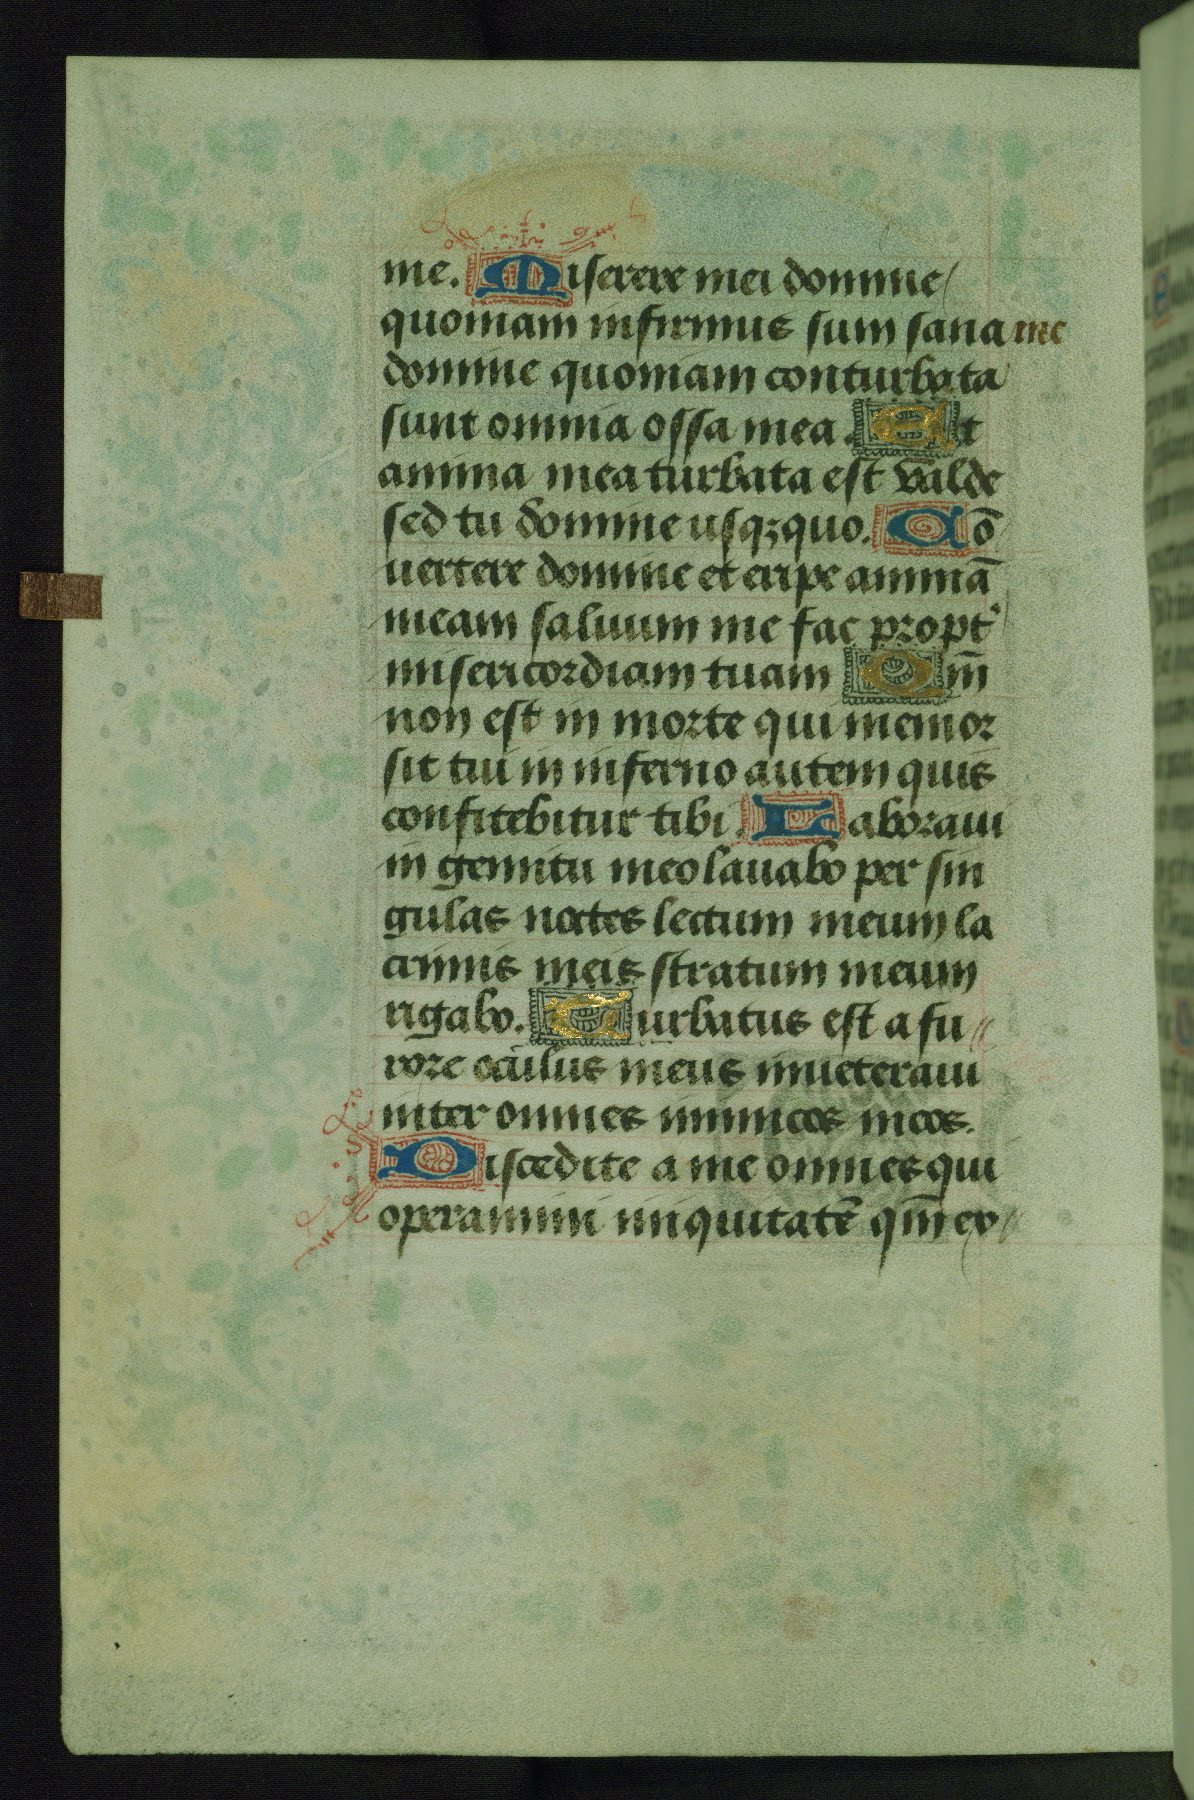 me. Miserere mei domine
quoniam infirmus sum sana me
domine quoniam conturbata
sunt omnia ossa mea. Et
anima mea turbata est valde
sed tu domine usqꝫquo. Cō
uertere domine et eripe animā
meam saluum me fac propt᾽
misericordiam tuam Qm̄
non est in morte qui memor
sit tui in inferno autem quis
confitebitur tibi. Laboraui
in gemitu meo lauabo per sin
gulas noctes lectum meum la
crimis meis stratum meum
rigabo. Turbatus est a fu
rore oculus meus inueteraui
inter omnes inimicos meos.
Discedite a me omnes qui
operamini iniquitatē qm̄ ex